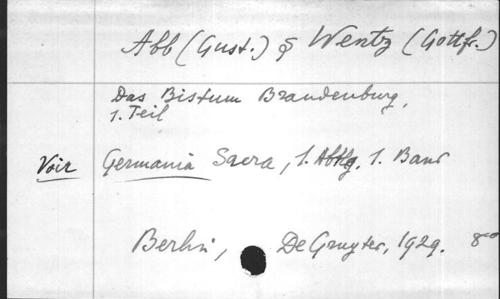 Abb (Gust.) & Wentz (Gottfr.)
Das Bistum Brandenburg,
1. Teil
Voir Germania Sacra, 1. Abtlg. 1. Band
Berlin, De Gruyter, 1929. 8°